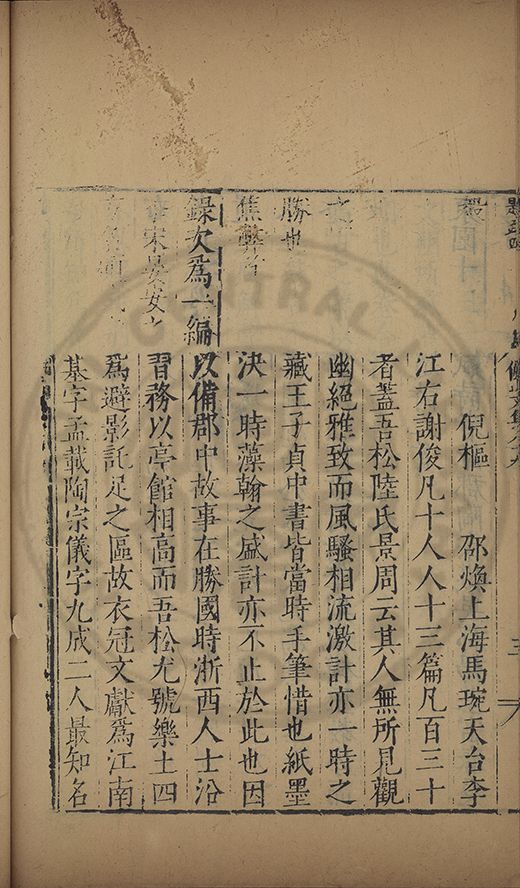 倪樞 邵煥上海馬琬天台李
江右謝俊凡十人人十三篇凡百三十
者蓋吾松陸氏景周云其人無所見觀
幽絕雅致而風騷相流激計亦一時之
勝也 藏王子貞中書皆當時手筆惜也紙墨
決一時藻翰之盛計亦不止於此也因
錄次爲一編以備郡中故事在勝國時浙西人士沿
宋晏安之習務以亭館相高而吾松尤號樂土四
爲避影託足之區故衣冠文獻爲江南
基字孟載陶宗儀字九成二人最知名